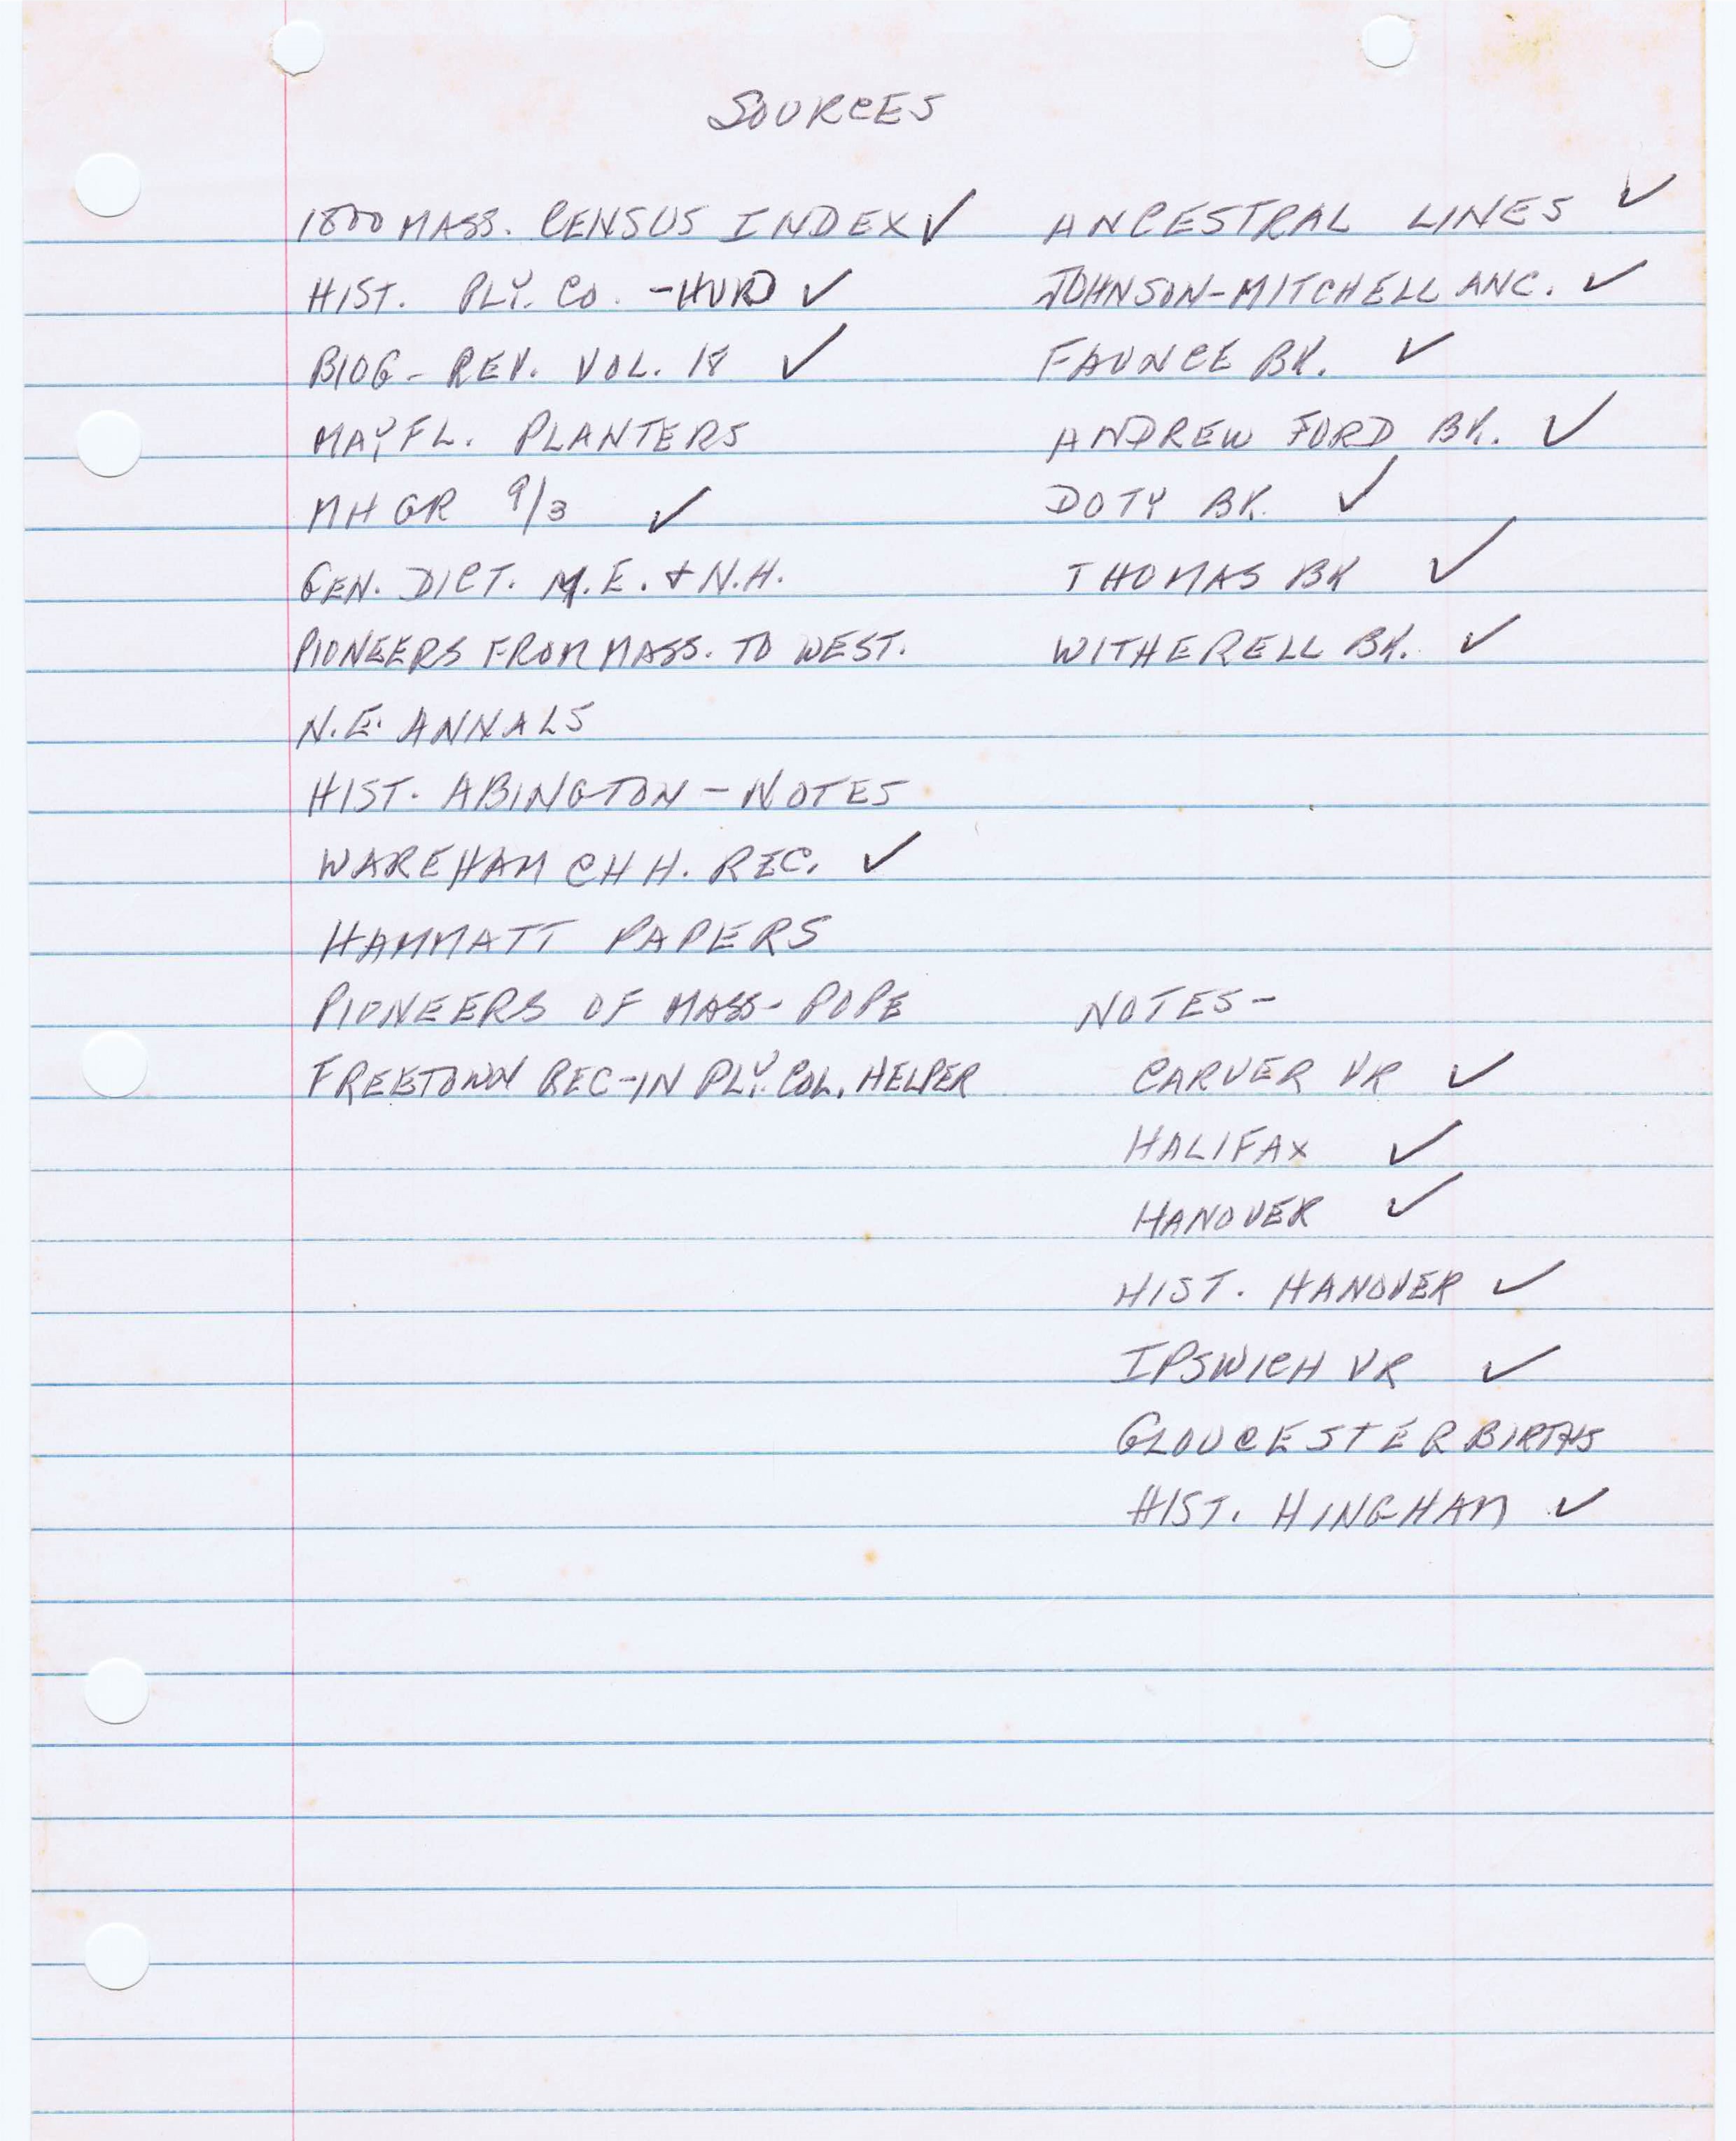 SOURCES
1800 MASS. CENSUS INDEX ✓
HIST. PLY. CO. - HURD ✓
BIOG - REV. VOL. 18 ✓
MAYFL. PLANTERS
MHGR 9/3 ✓
GEN. DICT. M.E. & N.H.
PIONEERS FROM MASS. TO WEST.
N.E. ANNALS
HIST. ABINGTON - NOTES
WAREHAM CHH. REC. ✓
HAMMATT PAPERS
PIONEERS OF MASS - POPE
FREETOWN REC - IN PLY. COL. HELPER
ANCESTRAL LINES ✓
JOHNSON - MITCHELL ANC. ✓
FAUNCE BK. ✓
ANDREW FORD BK. ✓
DOTY BK. ✓
THOMAS BK ✓
WITHERELL BK. ✓
NOTES -
CARVER VR ✓
HALIFAX ✓
HANOVER ✓
HIST. HANOVER ✓
IPSWICH VR ✓
GLOUCESTER BIRTHS
HIST. HINGHAM ✓